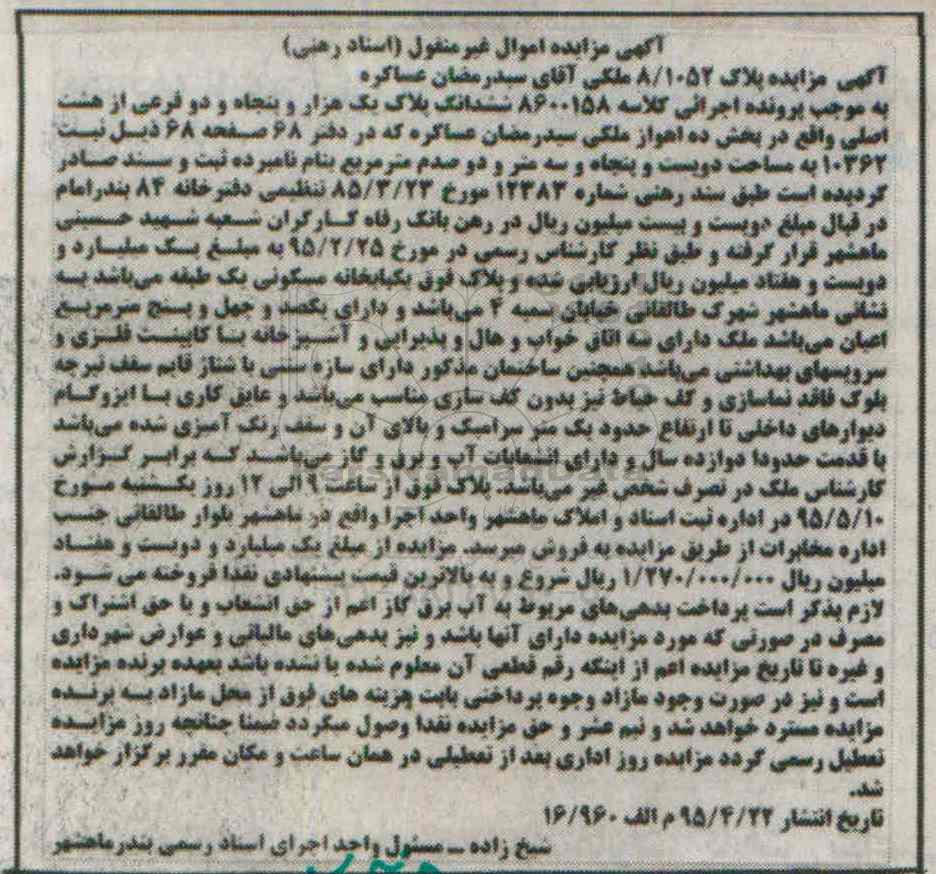 آگهی مزایده اموال غیر منقول (اسناد رهنی)
آگهی مزایده پلاک ۸/۱۰۵۲ ملکی آقای سیدرمضان عساکره
به موجب پرونده اجرائی کلاسه ۸۶۰۰۱۵۸ ششدانگ پلاک یک هزار و پنجاه و دو فرعی از هشت
اصلی واقع در بخش ده اهواز ملکی سیدرمضان عساکره که در دفتر ۶۸ صفحه ۶۸ ذیل ثبت
۱۰۳۶۲ به مساحت دویست و پنجاه و سه متر و دو صدم مترمربع بنام نامبرده ثبت و سند صادر
گردیده است طبق سند رهنی شماره ۱۲۳۸۳ مورخ ۸۵/۳/۲۳ تنظیمی دفترخانه ۸۴ بندرامام
در قبال مبلغ دویست و بیست میلیون ریال در رهن بانک رفاه کارگران شعبه شهید حسینی
ماهشهر قرار گرفته و طبق نظر کارشناس رسمی در مورخ ۹۵/۲/۲۵ به مبلغ یک میلیارد و
دویست و هفتاد میلیون ریال ارزیابی شده و پلاک فوق یکبابخانه مسکونی یک طبقه می‌باشد به
نشانی ماهشهر شهرک طالقانی خیابان سمیه ۲ می‌باشد و دارای یکصد و چهل و پنج مترمربع
اعیان می‌باشد ملک دارای سه اتاق خواب و هال و پذیرایی و آشپزخانه با کابینت فلزی و
سرویسهای بهداشتی می‌باشد همچنین ساختمان مذکور دارای سازه سنی با شناژ قایم سقف تیرچه
بلوک فاقد نماسازی و کف حیاط نیز بدون کف سازی مناسب می‌باشد و عایق کاری با ایزوگام
دیوارهای داخلی تا ارتفاع حدود یک متر سرامیک و بالای آن و سقف رنگ آمیزی شده می‌باشد
با قدمت حدودا دوازده سال و دارای انشعابات آب و برق و گاز می‌باشد که برابر گزارش
کارشناس ملک در تصرف شخص غیر می‌باشد. پلاک فوق از ساعت ۹ الی ۱۲ روز یکشنبه مورخ
۹۵/۵/۱۰ در اداره ثبت اسناد و املاک ماهشهر واحد اجرا واقع در ماهشهر بلوار طالقانی جنب
اداره مخابرات از طریق مزایده به فروش میرسد. مزایده از مبلغ یک میلیارد و دویست و هفتاد
میلیون ریال ۱/۲۷۰/۰۰۰/۰۰۰ ریال شروع و به بالاترین قیمت پیشنهادی نقدا فروخته می شود.
لازم بذکر است پرداخت بدهی‌های مربوط به آب برق گاز اعم از حق انشعاب و یا حق اشتراک و
مصرف در صورتی که مورد مزایده دارای آنها باشد و نیز بدهی‌های مالیاتی و عوارض شهرداری
و غیره تا تاریخ مزایده اعم از اینکه رقم قطعی آن معلوم شده یا نشده باشد بعهده برنده مزایده
است و نیز در صورت وجود مازاد وجوه پرداختی بابت هزینه های فوق از محل مازاد به برنده
مزایده مسترد خواهد شد و نیم عشر و حق مزایده نقدا وصول میگردد ضمنا چنانچه روز مزایده
تعطیل رسمی گردد مزایده روز اداری بعد از تعطیلی در همان ساعت و مکان مقرر برگزار خواهد
شد.
تاریخ انتشار ۹۵/۴/۲۲ م الف ۱۶/۹۶۰
شیخ زاده – مسئول واحد اجرای اسناد رسمی بندرماهشهر